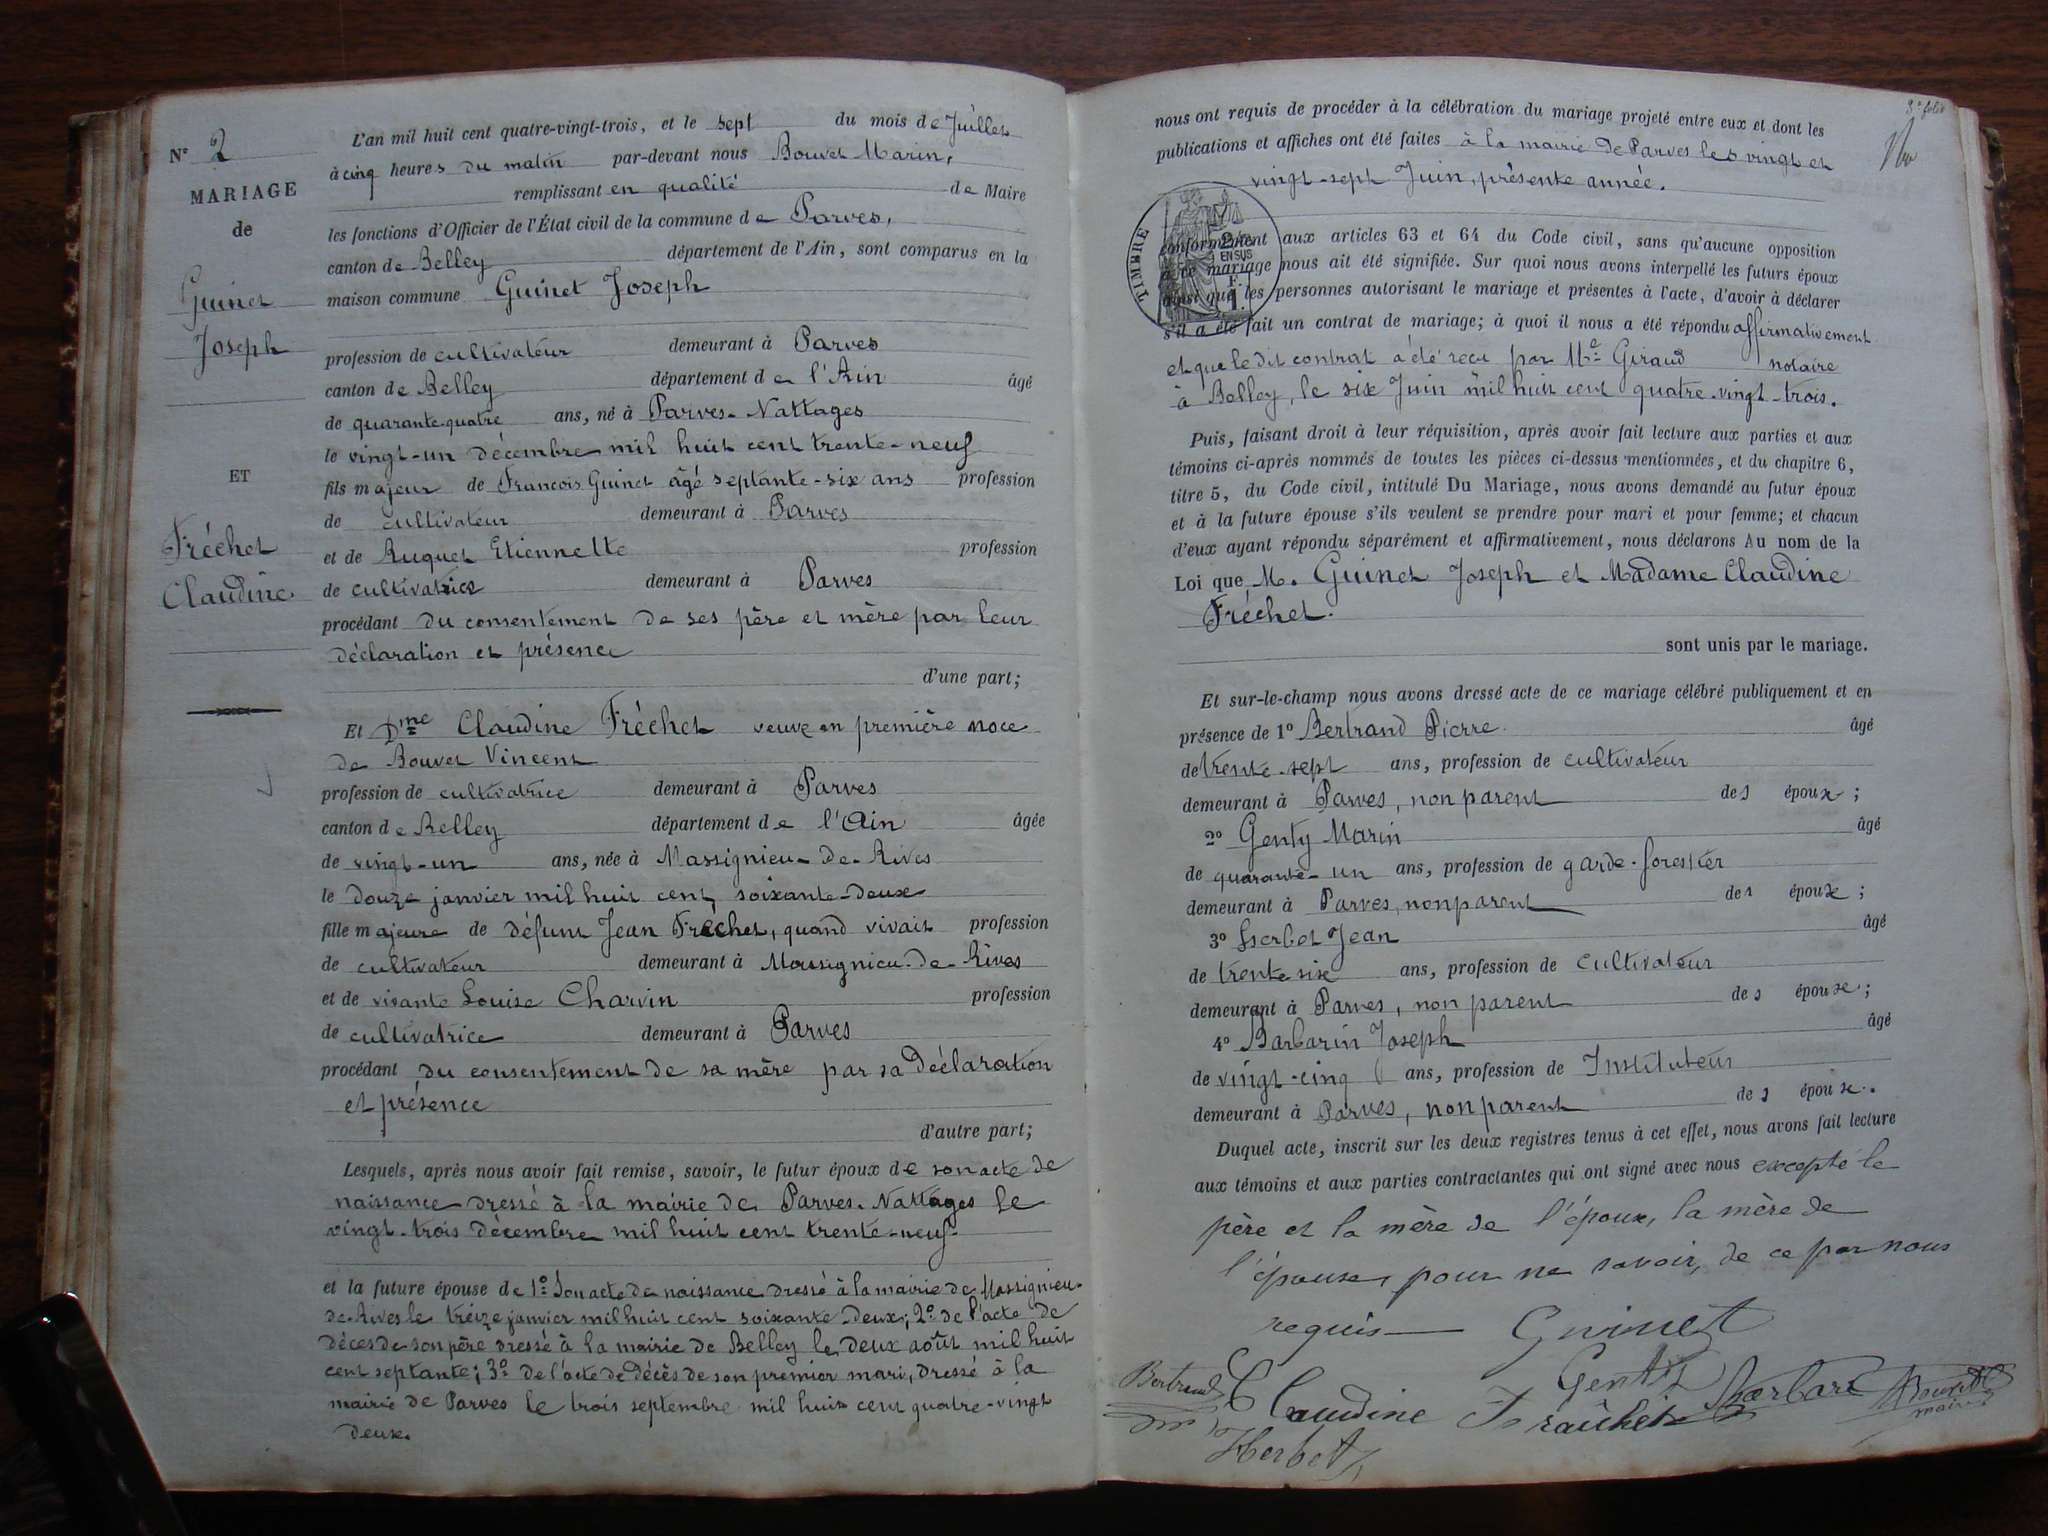 N° 2
MARIAGE
de
Guinet
Joseph
ET
Fréchet
Claudine
L'an mil huit cent quatre-vingt-trois, et le sept du mois de Juillet
à cinq heures du matin par-devant nous Bouvet Marin,
remplissant en qualité de Maire
les fonctions d'Officier de l'État civil de la commune de Parves,
canton de Belley département de l'Ain, sont comparus en la
maison commune Guinet Joseph
profession de cultivateur demeurant à Parves
canton de Belley département de l'Ain âgé
de quarante-quatre ans, né à Parves-Nattages
le vingt-un décembre mil huit cent trente-neuf
fils majeur de Francois Guinet âgé septante-six ans profession
de cultivateur demeurant à Parves
et de Ruquet Etiennette profession
de cultivatrice demeurant à Parves
procédant du consentement de ses père et mère par leur
déclaration et présence
d'une part;
Et Dme Claudine Fréchet veuve en première noce
de Bouvet Vincent
profession de cultivatrice demeurant à Parves
canton de Belley département de l'Ain âgée
de vingt-un ans, née à Massignieu-de-Rives
le douze janvier mil huit cent soixante-deux
fille majeure de défunt Jean Fréchet, quand vivait profession
de cultivateur demeurant à Massignieu-de-Rives
et de vivante Louise Charvin profession
de cultivatrice demeurant à Parves
procédant du consentement de sa mère par sa déclaration
et présence
d'autre part;
Lesquels, après nous avoir fait remise, savoir, le futur époux de son acte de
naissance dressé à la mairie de Parves-Nattages le
vingt-trois décembre mil huit cent trente-neuf-
et la future épouse de 1° Son acte de naissance dressé à la mairie de Massignieu-
de-Rives le treize janvier mil huit cent soixante-deux; 2° de l'acte de
décès de son père dressé à la mairie de Belley le deux août mil huit
cent septante; 3° de l'acte de décès de son premier mari, dressé à la
mairie de Parves le trois septembre mil huit cent quatre-vingt
deux.
3e folio
nous ont requis de procéder à la célébration du mariage projeté entre eux et dont les
publications et affiches ont été faites à la mairie de Parves les vingt et
vingt-sept Juin, présente année.
TIMBRE
2/10
EN SUS
F.
1.
conformément aux articles 63 et 64 du Code civil, sans qu'aucune opposition
à ce mariage nous ait été signifiée. Sur quoi nous avons interpellé les futurs époux
ainsi que les personnes autorisant le mariage et présentes à l'acte, d'avoir à déclarer
s'il a été fait un contrat de mariage; à quoi il nous a été répondu affirmativement
et que le dit contrat a été reçu par Me Giraud notaire
à Belley, le six Juin mil huit cent quatre-vingt-trois.
Puis, faisant droit à leur réquisition, après avoir fait lecture aux parties et aux
témoins ci-après nommés de toutes les pièces ci-dessus mentionnées, et du chapitre 6,
titre 5, du Code civil, intitulé Du Mariage, nous avons demandé au futur époux
et à la future épouse s'ils veulent se prendre pour mari et pour femme; et chacun
d'eux ayant répondu séparément et affirmativement, nous déclarons Au nom de la
Loi que M. Guinet Joseph et Madame Claudine
Fréchet.
sont unis par le mariage.
Et sur-le-champ nous avons dressé acte de ce mariage célébré publiquement et en
présence de 1° Bertrand Pierre âgé
de trente-sept ans, profession de cultivateur
demeurant à Parves, non parent des époux;
2° Genty Marin âgé
de quarante-un ans, profession de garde-forestier
demeurant à Parves, non parent des époux;
3° Jean âgé
de trente six ans, profession de cultivateur
demeurant à Parves, non parent des époux;
4° Barbarin Joseph âgé
de vingt-cinq ans, profession de Instituteur
demeurant à Parves, non parent des époux.
Duquel acte, inscrit sur les deux registres tenus à cet effet, nous avons fait lecture
aux témoins et aux parties contractantes qui ont signé avec nous excepté le
père et la mère de l'époux, la mère de
l'épouse, pour ne savoir, de ce par nous
requis Guinet
Bertrand Genty Bouvet
Claudine maire
Herbet